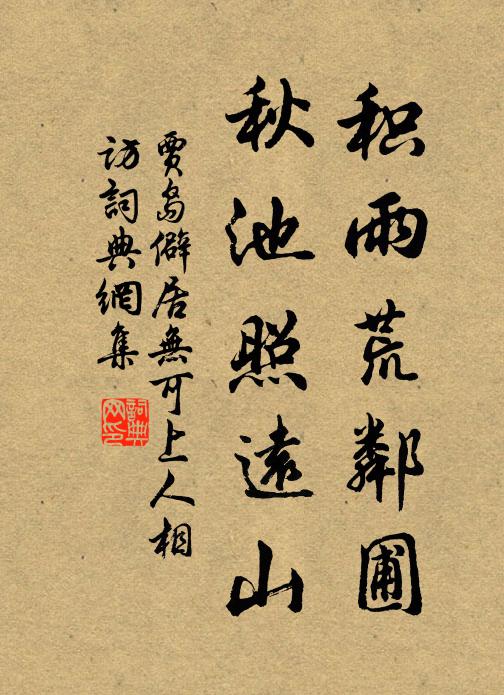 积雨荒鄰圃
秋池照遠山
賈島僻居無可上人相
訪詞典網集
詞典網印